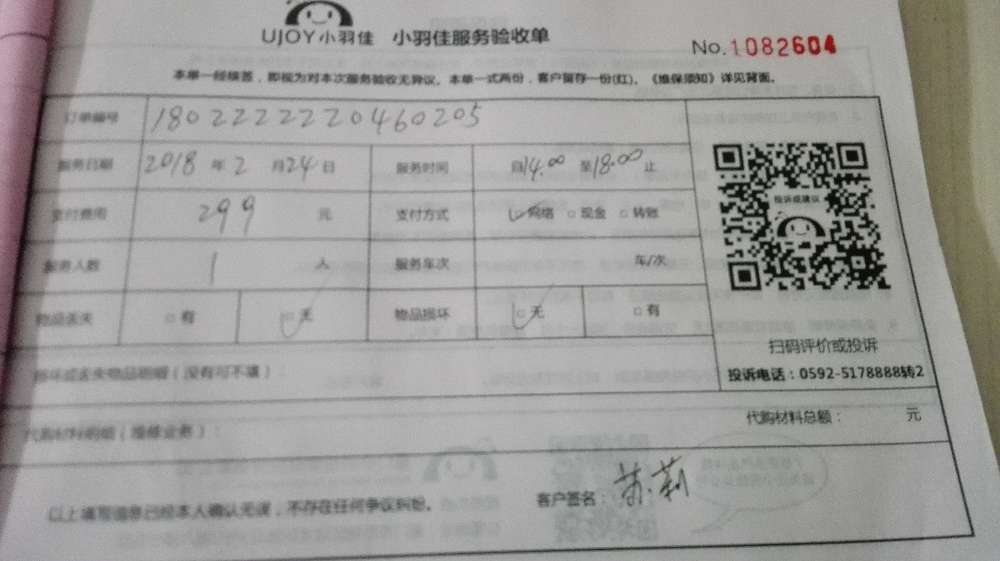 UJOY小羽佳 小羽佳服务验收单
No.1082604
本单一经核签，即视为对本次服务验收无异议。本单一式两份，客户留存一份(红)，《维保须知》详见背面。
订单编号 1802222220460205
服务日期 2018年2月24日 服务时间 自14.00至18.00止
投诉或建议
支付费用 299 元 支付方式 网络 □现金 □转账
服务人数 1 人 服务车次 车/次
物品丢失 □有 □无 物品损坏 □无 □有
扫码评价或投诉
损坏或丢失物品明细（没有可不填）：
投诉电话：0592-5178888转2
代购材料明细（维修业务）： 代购材料总额： 元
以上填写信息已经本人确认无误，不存在任何争议纠纷。 客户签名：苏莉